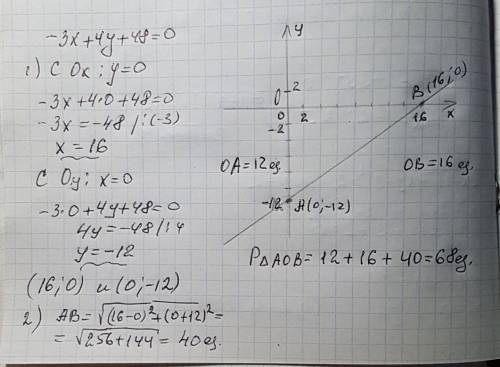 -3x+4y+48=0
1) С Ox: y=0
-3x+4·0+48=0
-3x=-48 /:(-3)
x=16
С Oy: x=0
-3·0+4y+48=0
4y=-48/:4
y=-12
(16;0) и (0;-12)
2) AB=√((16-0)²+(0+12)²)=
=√(256+144)=40ед.
y
B(16;0)
0 2
0 2 16 x
-2
OA=12ед. OB=16ед.
-12 A(0;-12)
P△AOB=12+16+40=68ед.